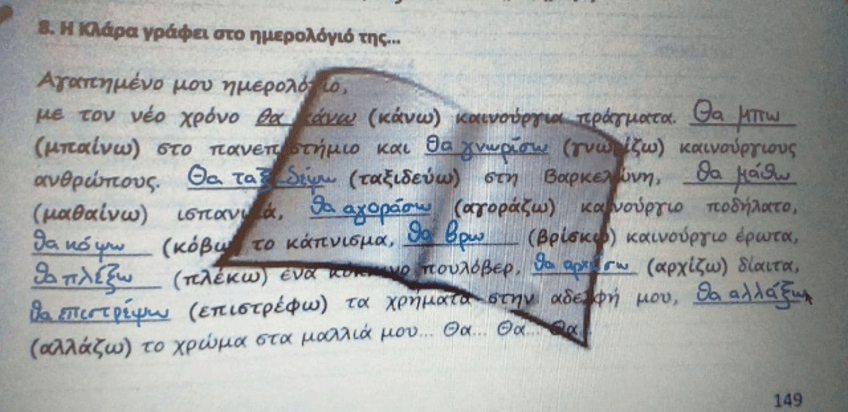 8. Η Κλάρα γράφει στο ημερολόγιό της...
Αγαπημένο μου ημερολόγιο,
με τον νέο χρόνο θα κάνω (κάνω) καινούργια πράγματα. Θα μπω
(μπαίνω) στο πανεπιστήμιο και θα γνωρίσω (γνωρίζω) καινούργιους
ανθρώπους. Θα ταξιδέψω (ταξιδεύω) στη Βαρκελώνη, θα μάθω
(μαθαίνω) ισπανικά, θα αγοράσω (αγοράζω) καινούργιο ποδήλατο,
θα κόψω (κόβω) το κάπνισμα, θα βρω (βρίσκω) καινούργιο έρωτα,
θα πλέξω (πλέκω) ένα κόκκινο πουλόβερ, θα αρχίσω (αρχίζω) δίαιτα,
θα επιστρέψω (επιστρέφω) τα χρήματα στην αδελφή μου, θα αλλάξω
(αλλάζω) το χρώμα στα μαλλιά μου... Θα... Θα... Θα...
149